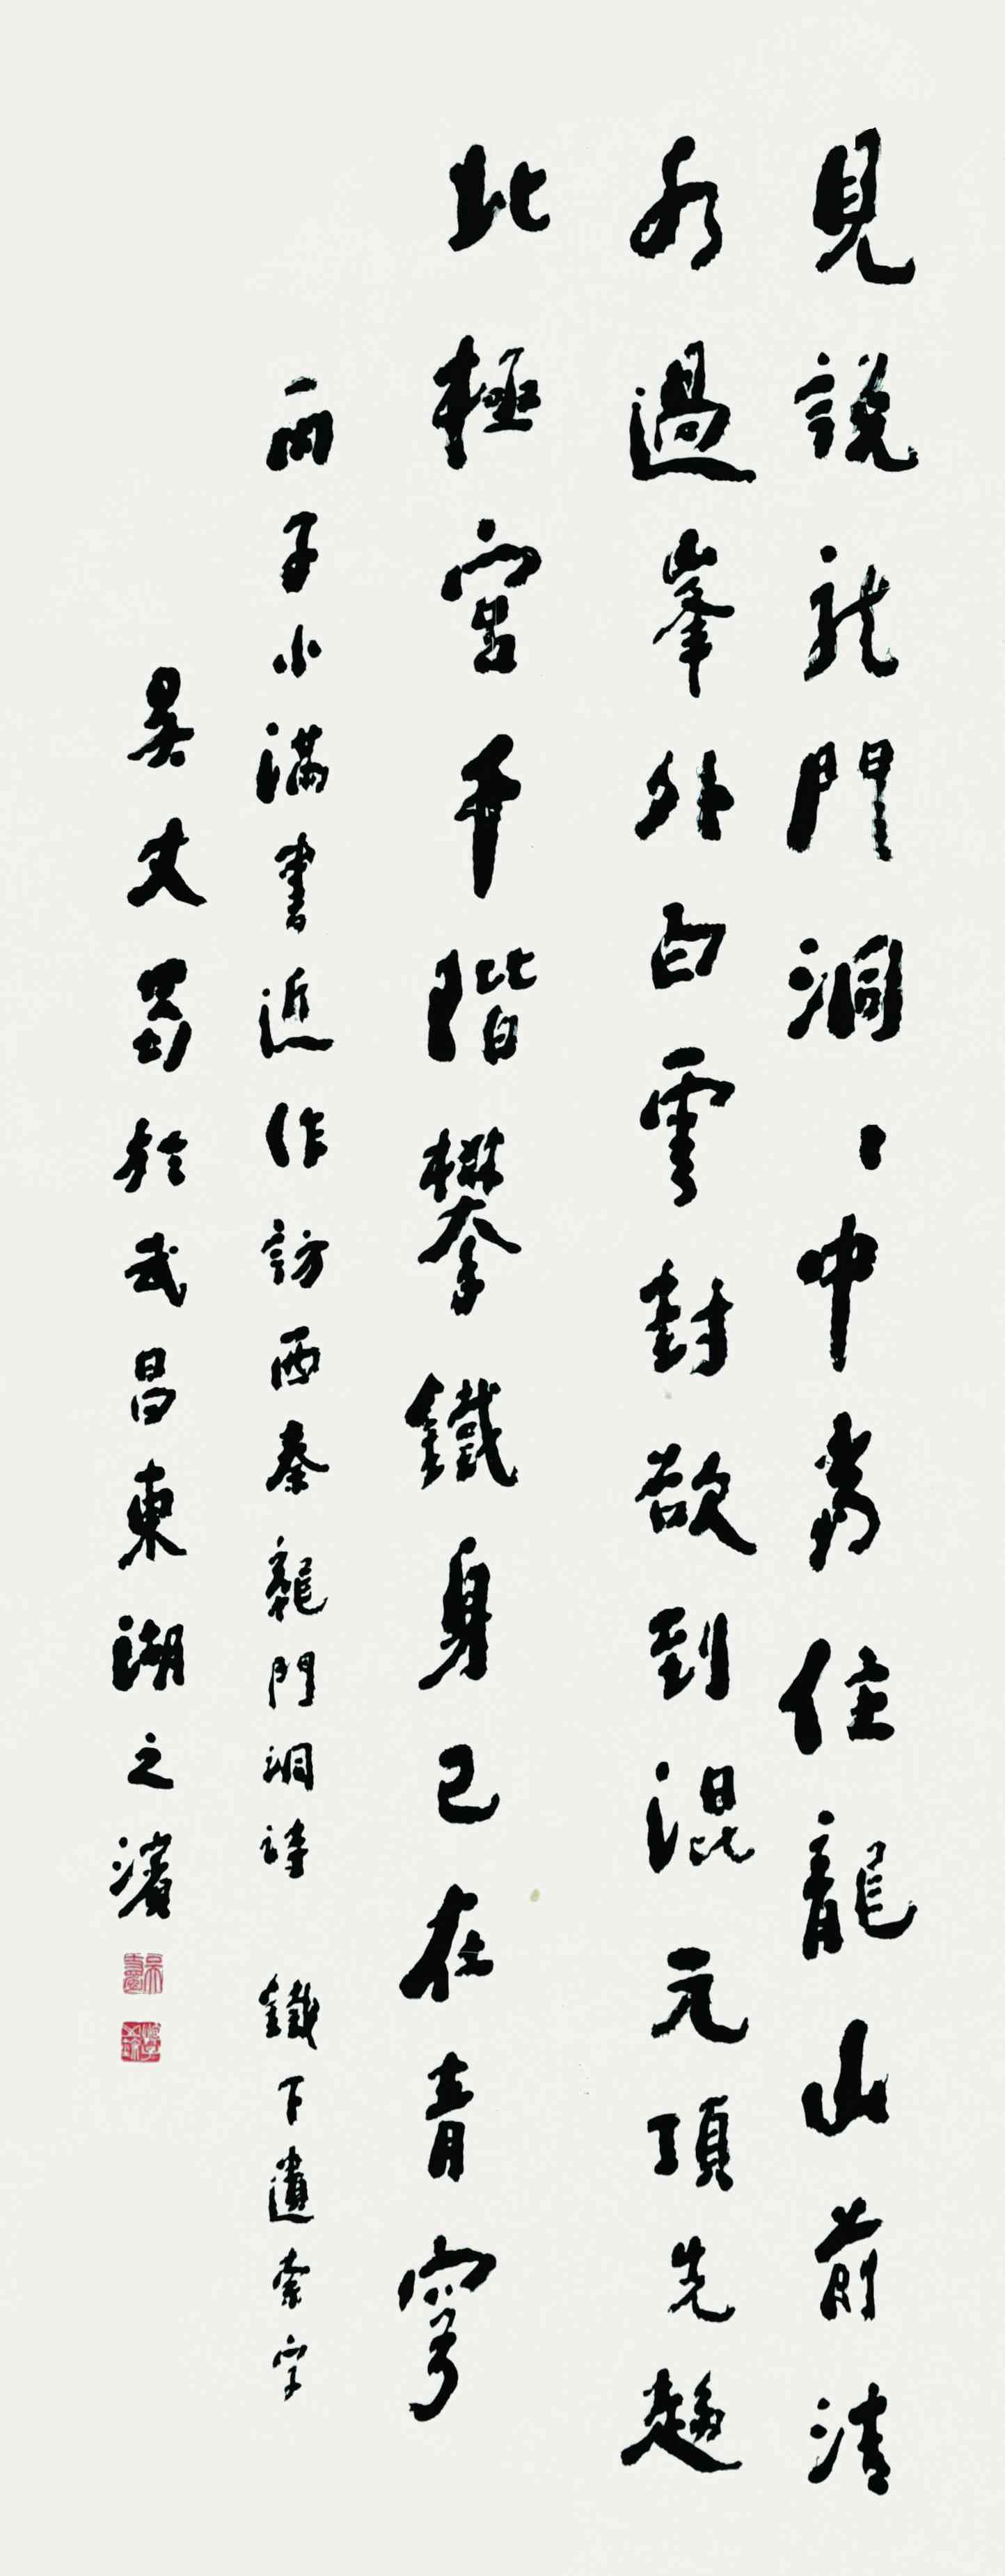 見說龍門洞〻中常住龍山前清
水過峯外白雲封欲到混元頂先趨
北極宮千階攀鐵身已在青穹
丙子小滿書近作訪西秦龍門洞詩 鐵下遺索字
吳丈蜀於武昌東湖之濱